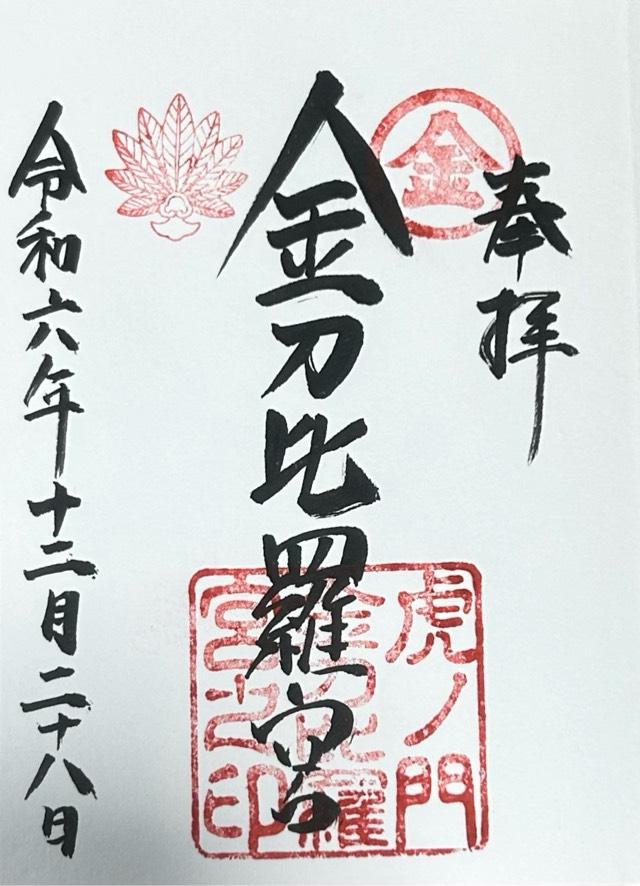 奉拝
金
金刀比羅宮
虎ノ門
金刀比羅
宮之印
令和六年十二月二十八日